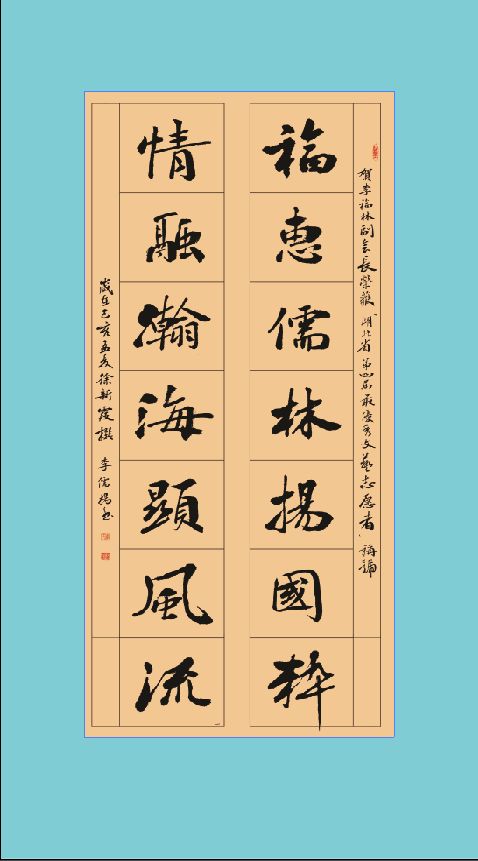 賀李福林副会長榮獲"湖北省第四届最受秀文藝志愿者"稱號
福惠儒林揚國粹
情融瀚海顯風流
歲在己亥孟夏徐新霞撰 李儒楊書